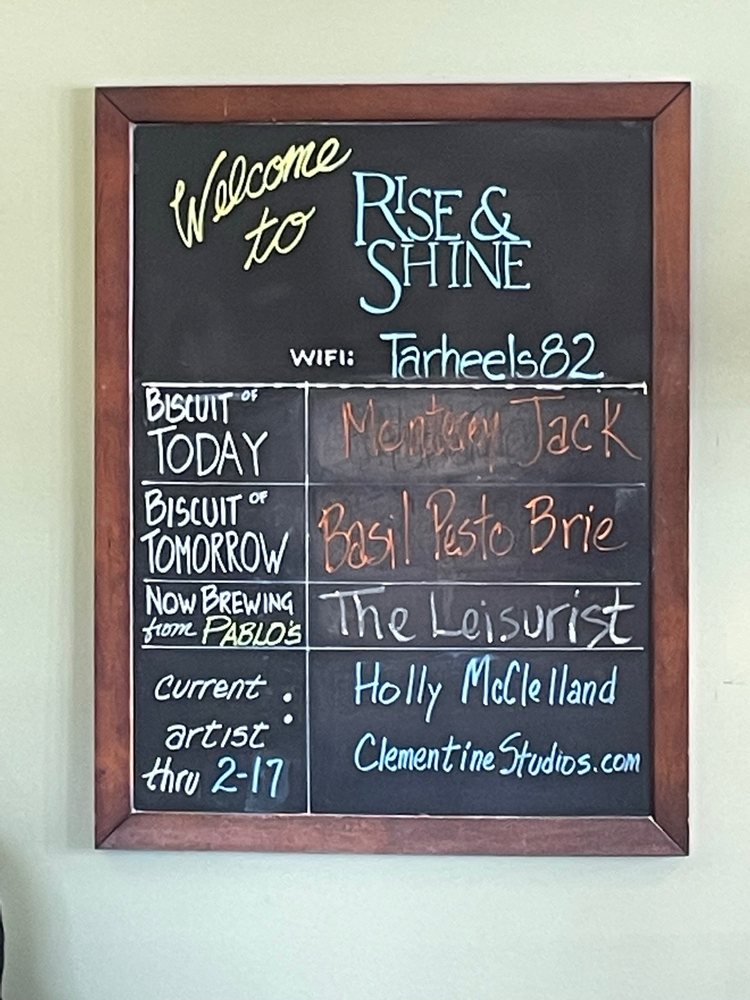 Welcome
to
RISE &
SHINE
WIFI: Tarheels82
BISCUIT OF
TODAY
Monterey Jack
BISCUIT OF
TOMORROW
Basil Pesto Brie
NOW BREWING
from PABLO'S
The Leisurist
current :
artist
thru 2-17
Holly McClelland
ClementineStudios.com